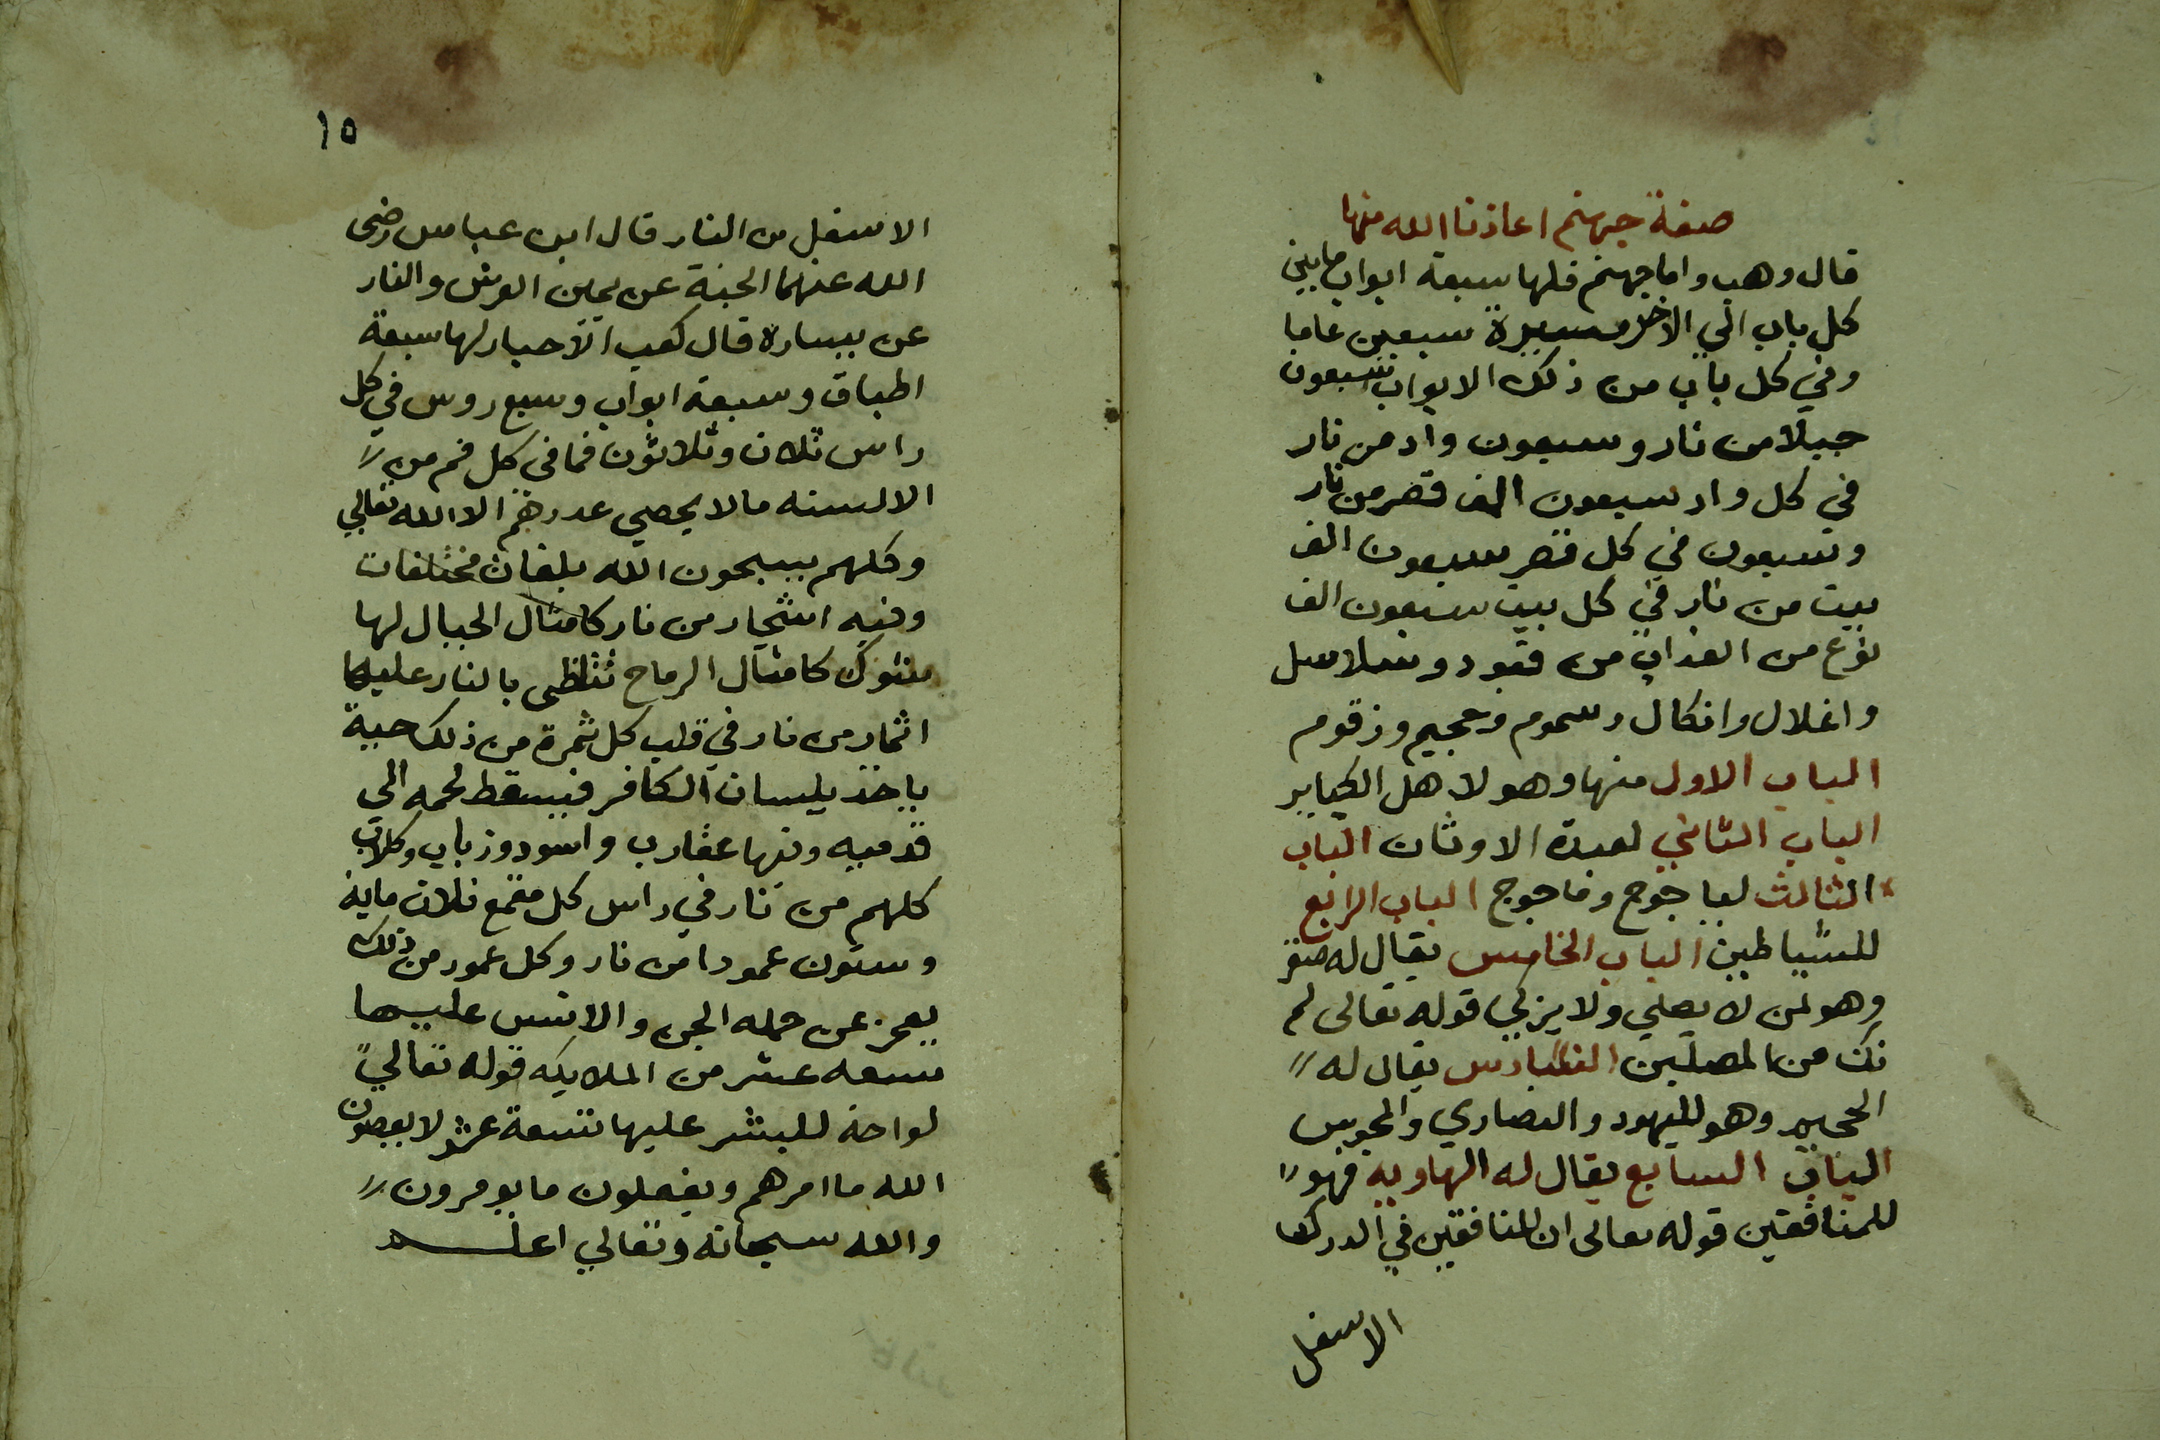 صفة جهنم اعاذنا الله منها
قال وهب واما جهنم فلها سبعة ابواب مابين
كل باب الي الاخر مسيرة سبعين عاما
وفي كل باب من ذلك الابواب سبعون
جبلا من نار وسبعون واد من نار
في كل واد سبعون الف قصر من نار
وسبعون في كل قصر سبعون الف
بيت من نار في كل بيت سبعون الف
نوع من العذاب من قيود وسلاسل
واغلال وانكال وسموم وحميم وزقوم
الباب الاول منها وهو لاهل الكباير
الباب الثاني لعبدة الاوثان الباب
الثالث لياجوج وماجوج الباب الرابع
للشياطين الباب الخامس يقال له صقر
وهو لمن لا يصلي ولا يزكي قوله تعالى لم
نك من المصلين السادس يقال له
الجحيم وهو لليهود والنصاري والمجوس
الباب السابع يقال له الهاويه فهو
للمنافقين قوله تعالى ان المنافقين في الدرك
الاسفل
١٥
الاسفل من النار قال ابن عباس رضى
الله عنهما الجنة عن يمين العرش والنار
عن يساره قال كعب الاحبار لها سبعة
اطباق وسبعة ابواب وسبع روس في كل
راس ثلاث وثلاثون فما في كل فم من
الالسنه مالا يحصي عددهم الا الله تعالي
وكلهم يسبحون الله بلغات مختلفات
وفيه اشجار من نار كامثال الجبال لها
شوك كامثال الرماح تتلظى بالنار عليها
اثمار من نار في قلب كل ثمرة من ذلك حية
ياخذ بلسان الكافر فيسقط لحمه الي
قدميه وفيها عقارب واسود وزباب وكلاب
كلهم من نار في راس كل مقمع ثلاث ماية
وستون عمودا من نار وكل عمود من ذلك
يعجز عن حمله الجن والانس عليها
تسعه عشر من الملايكه قوله تعالي
لواحة للبشر عليها تسعة عشر لا يعصون
الله ما امرهم ويفعلون ما يومرون
والله سبحانه وتعالي اعلم